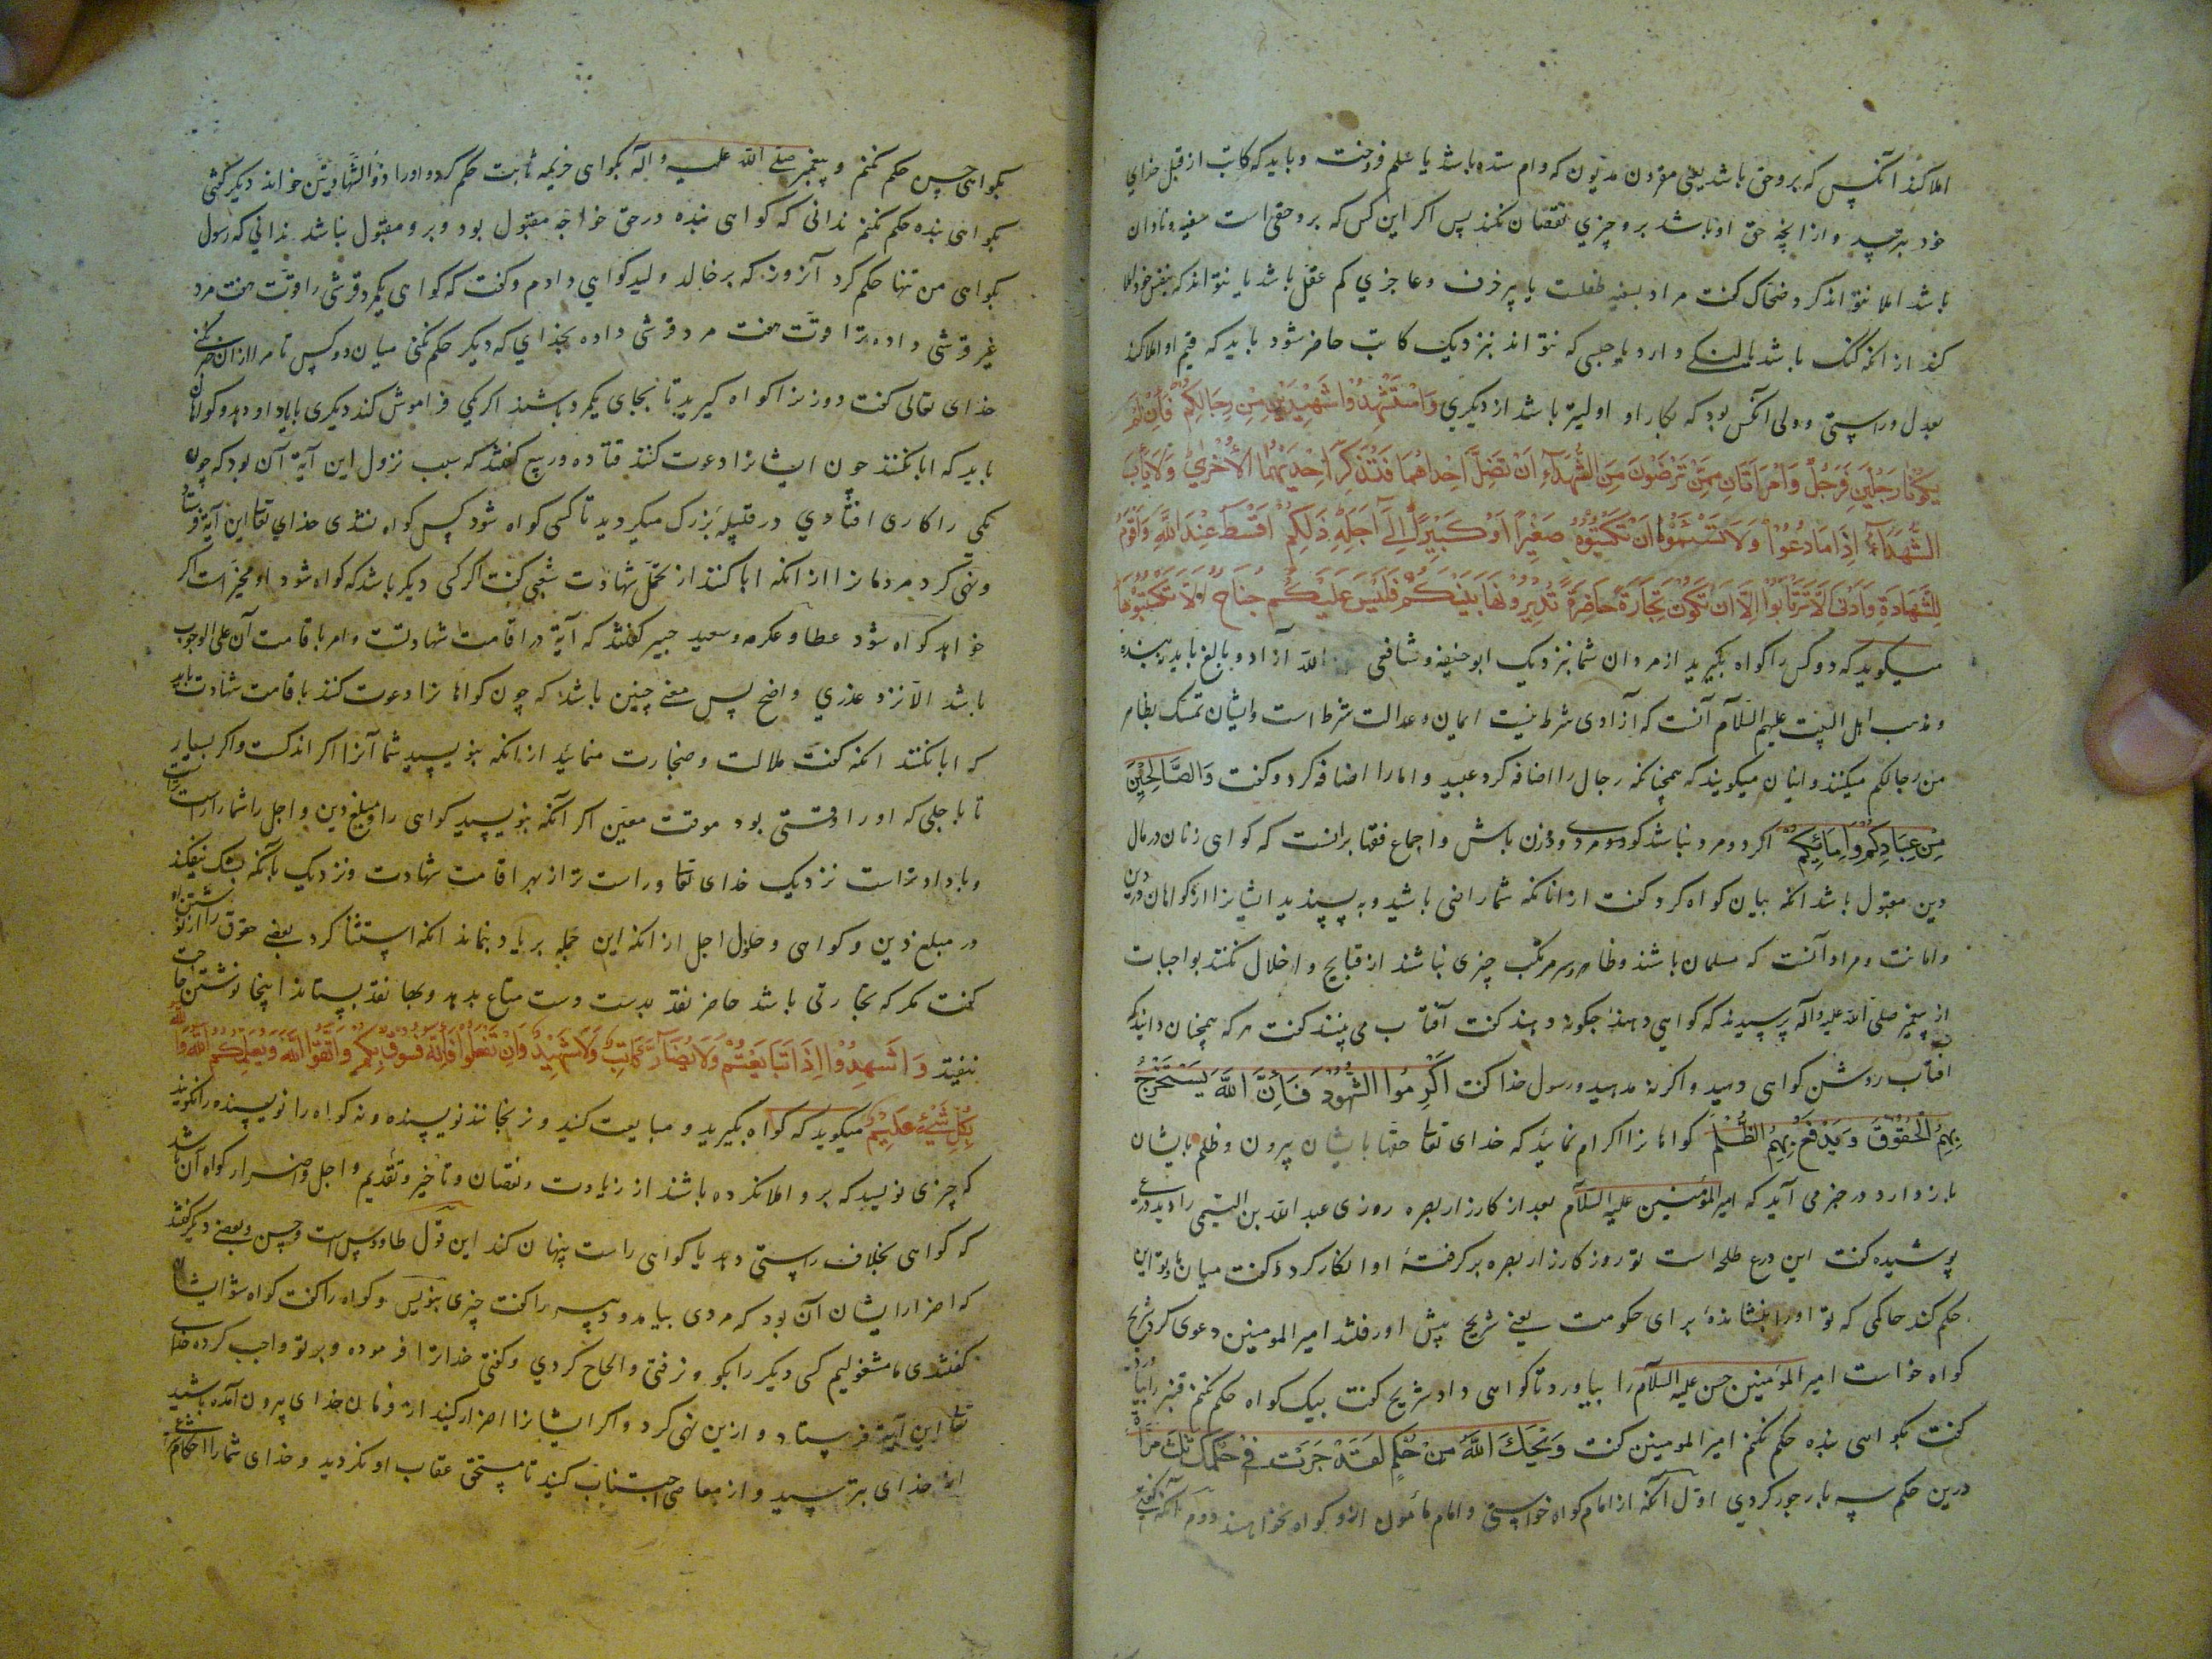 املا کند آنکس که برو حق باشد یعنی مقرون مدیون که وام ستده باشد یا سلم فروخت و باید که کاتب از قبل خدای
خود بترسد و از آنچه حق او باشد برو چیزی نقصان نکند پس اگر این کس که برو حقی است سفیه و نادان
باشد املا نتواند کرد ضحاک گفت مراد بسفیه طفلست یا پیر خرف و عاجزی کم عقل باشد یا نتواند که بنفس خود املا
کند از آنکه گنگ باشد یا لنگی دارد یا حبسی که نتواند بنزدیک کاتب حاضر شود باید که قیم او املا کند
بعدل و راستی و ولی آنکس بود که بکار او اولیتر باشد از دیگری وَاسْتَشْهِدُوا شَهِيدَيْنِ مِنْ رِجَالِكُمْ فَاِنْ لَمْ
يَكُونَا رَجُلَيْنِ فَرَجُلٌ وَامْرَاَتَانِ مِمَّنْ تَرْضَوْنَ مِنَ الشُّهَدَآءِ اَنْ تَضِلَّ اِحْدَاهُمَا فَتُذَكِّرَ اِحْدَيهُمَا الْاُخْرَى وَلَا يَأْبَ
الشُّهَدَآءُ اِذَا مَا دُعُوا وَلَا تَسْئَمُوا اَنْ تَكْتُبُوهُ صَغِيرًا اَوْ كَبِيرًا اِلَى اَجَلِهِ ذَلِكُمْ اَقْسَطُ عِنْدَ اللّٰهِ وَاَقْوَمُ
لِلشَّهَادَةِ وَاَدْنَى اَلَّا تَرْتَابُوا اِلَّا اَنْ تَكُونَ تِجَارَةً حَاضِرَةً تُدِيرُونَهَا بَيْنَكُمْ فَلَيْسَ عَلَيْكُمْ جُنَاحٌ اَلَّا تَكْتُبُوهَا
میگوید که دو کس را گواه بگیرید از مردان شما بنزدیک ابو حنیفه و شافعی الله آزاد و بالغ باید نه بنده
و مذهب اهل البیت علیهم السلام آنست که آزادی شرط نیست ایمان و عدالت شرط است و ایشان تمسک بظاهر
من رجالکم میکنند و اینان میگویند که همچنانکه رجال را اضافه کرد عبید و اما را اضافه کرد و گفت وَالصَّالِحِينَ
مِنْ عِبَادِكُمْ وَاِمَائِكُمْ اگر دو مرد نباشد گو مردی و دو زن باش و اجماع فقها برآنست که گواهی زنان در مال
دین مقبول باشد آنکه بیان گواه کرد گفت از آنانکه شما راضی باشید و بپسندید ایشانرا از گواهان در دین
و امانت و مراد آنست که مسلمان باشند و ظاهر مرتکب چیزی نباشند از قبایح و اخلال نکنند بواجبات
از پیغمبر صلی الله علیه و آله پرسیدند که گواهی دهند چگونه دهند گفت آفتاب می بینند گفت هر که همچنان داند که
آفتاب روشن گواهی دهید و اگر نه مدهید و رسول خدا گفت اَكْرِمُوا الشُّهُودَ فَاِنَّ اللّٰهَ يَسْتَخْرِجُ
بِهِمُ الْحُقُوقَ وَيَدْفَعُ بِهِمُ الظُّلْمَ گواهانرا اکرام نمائید که خدای تعا حقها بایشان بیرون و ظلم بایشان
باز دارد در خبر می آید که امیرالمؤمنین علیه السلام بعد از کارزار بصره روزی عبد الله بن التیمی را دید درعی
پوشیده گفت این درع طلحه است تو روز کارزار بصره برگرفتهٔ او انکار کرد و گفت میان ما و تو این
حکم کند حاکمی که تو او را بنشاندهٔ برای حکومت یعنی شریح پیش او رفتند امیر المومنین دعوی کرد شریح
گواه خواست امیر المؤمنین حسن علیه السلام را بیاورد تا گواهی داد شریح گفت بیک گواه حکم نکنم قنبر را بیاورد
گفت بگواهی بنده حکم نکنم امیر المومنین گفت وَيْحَكَ اللّٰهُ مِنْ حُكْمٍ لَقَدْ جَرَتْ فِى حُكْمِكَ ثَلٰثَ مَرَّاةٍ
درین حکم سه بار جور کردی اول آنکه از امام گواه خواستی و امام مأمون ازو گواه نخواهند دوم آنکه گفتی
بگواهی حسن حکم نکنم و پیغمبر صلی الله علیه و آله بگواهی خزیمه ثابت حکم کرد و او را ذو الشّهادتین خواند دیگر گفتی
بگواهی بنده حکم نکنم ندانی که گواهی بنده در حق خواجه مقبول بود و برو مقبول نباشد ندانی که رسول
بگواهی من تنها حکم کرد آنروز که بر خالد ولید گواهی دادم و گفت که گواهی یکمرد قرشی را قوّت هفت مرد
غیر قرشی داده ترا قوّت هفت مرد قرشی داده بخدای که دیگر حکم نکنی میان دو کس تا مرا از آن خبر نکنی
خدای تعالی گفت دو زنرا گواه گیرید تا بجای یکمرد باشند اگر یکی فراموش کند دیگری با یاد او دهد و گواهان
باید که ابا نکنند چون ایشانرا دعوت کنند قتاده و ربیع گفتند که سبب نزول این آیة آن بود که چون
یکی را کاری افتادی در قبیلهٔ بزرگ میگردید تا کسی گواه شود کس گواه نشدی خدای تعا این آیة فرستاد
و نهی کرد مردمانرا از آنکه ابا کنند از تحمّل شهادت شعبی گفت اگر کسی دیگر باشد که گواه شود او مخیّر است اگر
خواهد گواه شود عطا و عکرمه و سعید جبیر گفتند که آیة در اقامت شهادتست و امر باقامت آن علی الوجوب
باشد الّا نزد عذری واضح پس معنی چنین باشد که چون گواهانرا دعوت کنند باقامت شهادت باید
که ابا نکنند آنکه گفت ملالت و ضجارت منمائید از آنکه بنویسید شما آنرا اگر اندکست و اگر بسیار
تا باجلی که او را وقتی بود موقت معین اگر آنکه بنویسید گواهی را و مبلغ دین و اجل را شما را راست
و باداد تراست نزدیک خدای تعا و راست تر از بهر اقامت شهادت و نزدیک بآنکه بشک نیفتند
در مبلغ دین و گواهی و حلول اجل از آنکه این جمله بر یاد بنماند آنکه استثنا کرد بعضی حقوق را از نوشتن او
گفت مگر که تجارتی باشد حاضر نقد بدست دست متاع بدهد و بها نقد بستاند اینجا نوشتن حاجت
نیفتد وَاَشْهِدُوا اِذَا تَبَايَعْتُمْ وَلَا يُضَآرَّ كَاتِبٌ وَلَا شَهِيدٌ وَاِنْ تَفْعَلُوا فَاِنَّهُ فُسُوقٌ بِكُمْ وَاتَّقُوا اللّٰهَ وَيُعَلِّمُكُمُ اللّٰهُ وَاللّٰهُ
بِكُلِّ شَىْءٍ عَلِيمٌ میگوید که گواه بگیرید و مبایعت کنید و نرنجانند نویسنده و نه گواه را نویسنده را نگویند
که چیزی نویسد که برو املا نکرده باشند از زیادت و نقصان و تأخیر و تقدیم و اجل و اضرار گواه آن باشد
که گواهی بخلاف راستی دهد یا گواهی راست پنهان کند این قول طاووس است و حسن و بعضی دیگر گفتند
که اضرار ایشان آن بود که مردی بیامدو دبیر را گفت چیزی بنویس و گواه را گفت گواه شو ایشان
گفتندی ما مشغولیم کسی دیگر را بگو و نرفتی و الحاح کردی و گفتی خدا ترا فرموده و بر تو واجب کرده خدای
تعا این آیة فرستاد و ازین نهی کرد و اگر ایشانرا اضرار کنید از فرمان خدای بیرون آمده باشید
از خدای بترسید و از معاصی اجتناب کنید تا مستحق عقاب او نگردید و خدای شما را احکام شرع